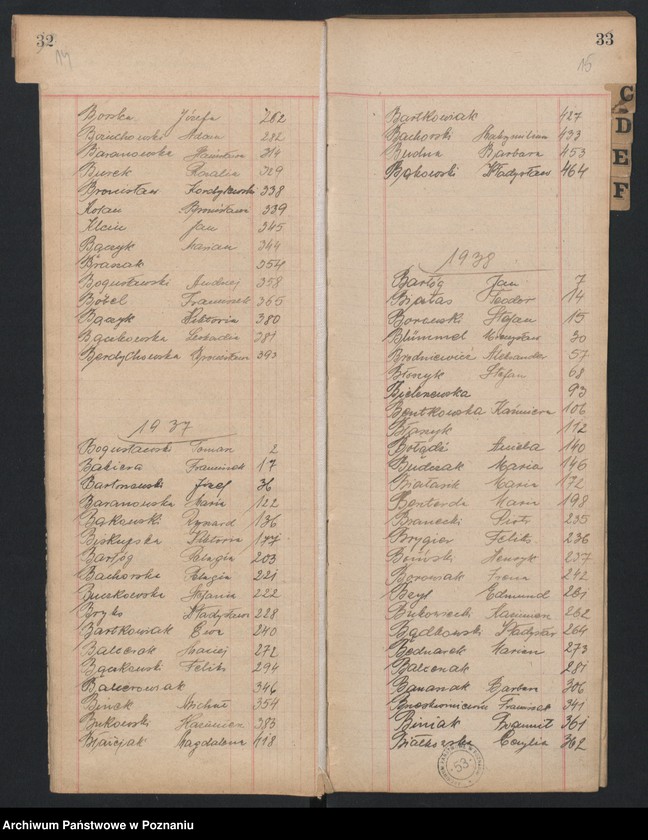 32
14
Borska Józefa 262
Bauchowski Adam 292
Baranowska Kazimiera 314
Burek Rozalia 329
Bronisław Kordylewska 338
Kotau Bronisława 339
Klein Jan 345
Bączyk Marian 344
Braszak 354
Bogusławski Andrzej 358
Bobel Franciszek 365
Bączyk Wiktoria 380
Bączkowska Leokadia 381
Berdychowska Bronisława 393
1937
Bogusławski Roman 2
Bakiera Franciszek 17
Bartoszewski Józef 36
Baranowska Maria 122
Bąkowski Ryszard 136
Biskupska Wiktoria 177
Bartóg Pelagia 203
Bachorska Pelagia 221
Buczkowska Stefania 222
Bryks Władysława 228
Bartkowiak Ewa 240
Balcerak Maciej 272
Bączkowski Feliks 294
Balcerowiak 346
Binek Michał 354
Bukowski Kazimierz 383
Błaśzjak Magdalena 418
33
15
C
D
E
F
Bartkowiak 427
Bachorski Maksymilian 433
Budna Barbara 453
Bąkowski Władysław 464
1938
Bartóg Jan 7
Białas Teodor 14
Borowski Stefan 15
Blümmel Mieczysław 30
Brodniewicz Aleksander 57
Błoszyk Stefan 68
Bielenowska 93
Bentkowska Kazimiera 106
Błaszyk 112
Bołądź 140
Budziak Maria 146
Białasik Maria 172
Maria 198
Branecki Piotr 235
Brygier Feliks 236
Biński Henryk 237
Borowiak Irena 242
Beyl Edmund 261
Bukowiecki Kazimierz 262
Bądkowski Władysław 264
Bednarek Marian 273
Balcerak 281
Bananiak Barbara 306
Franciszek 341
Biniak Bogumił 361
Białkowska Cecylia 362
53
Archiwum Państwowe w Poznaniu